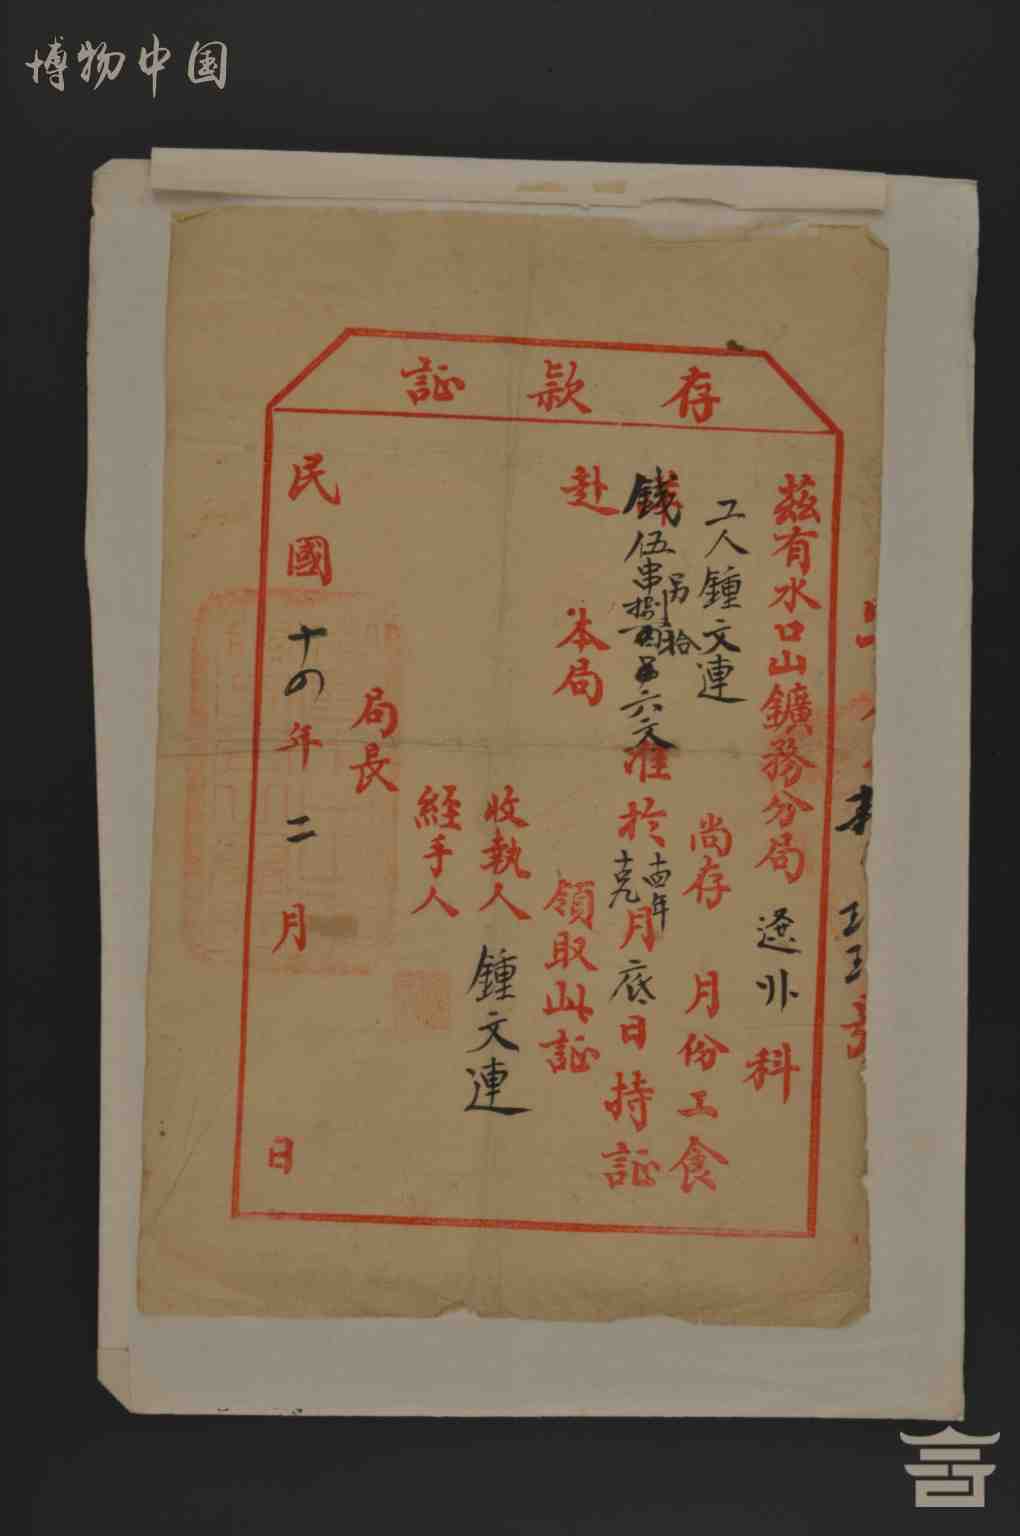 博物中国
存款証
茲有水口山鑛務分局 科
工人鍾文連 尚存 月份工食
錢伍串捌百 六文准於 月底日持証
另 拾
十四年
赴 本局 領取此証
收執人 鍾文連
經手人
局長
民國十四年二月 日